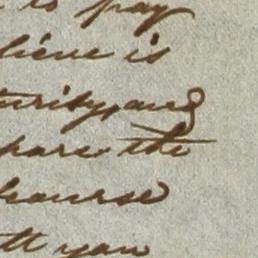 to pay
lieve is
turity, and
pare the
hause
tt you